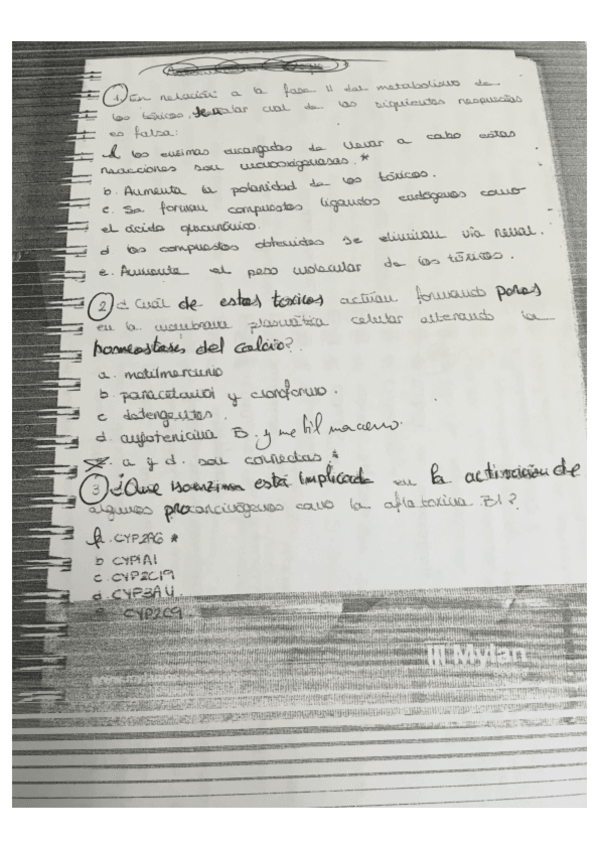 ① En relación a la fase II del metabolismo de
los tóxicos, señalar cual de las siguientes respuestas
es falsa:
a los enzimas encargados de llevar a cabo estas
reacciones son monooxigenasas. *
b. Aumenta la polaridad de los tóxicos.
c. Se forman compuestos ligandos endógenos como
el ácido glucurónico.
d. los compuestos obtenidos se eliminan vía renal.
e. Aumenta el peso molecular de los tóxicos.
② ¿Cuál de estos tóxicos actúan formando poros
en la membrana plasmática celular alterando la
homeostasis del calcio?
a. metilmercurio
b. paracetamol y cloroformo.
c detergentes.
d. anfotericina B. y metil mercurio.
a y d. son correctas. *
③ ¿Que isoenzima está implicada en la activación de
algunos procarcinógenos como la aflatoxina B1?
a. CYP2A6 *
b CYP1A1
c. CYP2C19
d. CYP3A4.
e CYP2C9.
Mylan